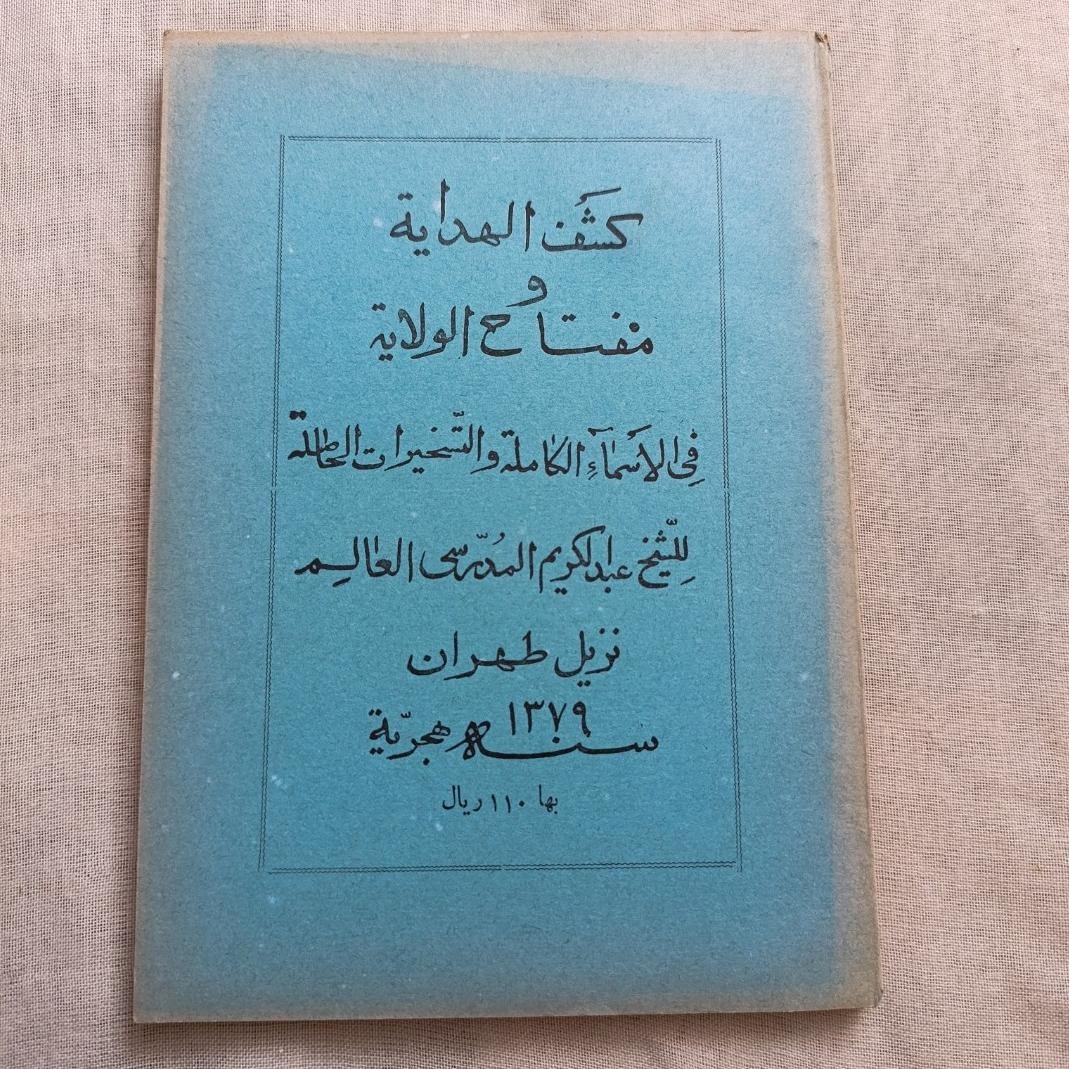 كشف الهداية
و
مفتاح الولاية
فى الاسماء الكاملة والتسخيرات الحاطلة
للشيخ عبدالكريم المدرسى العالم
نزيل طهران
سنه ١٣٧٩ هجرية
بها ١١٠ ريال